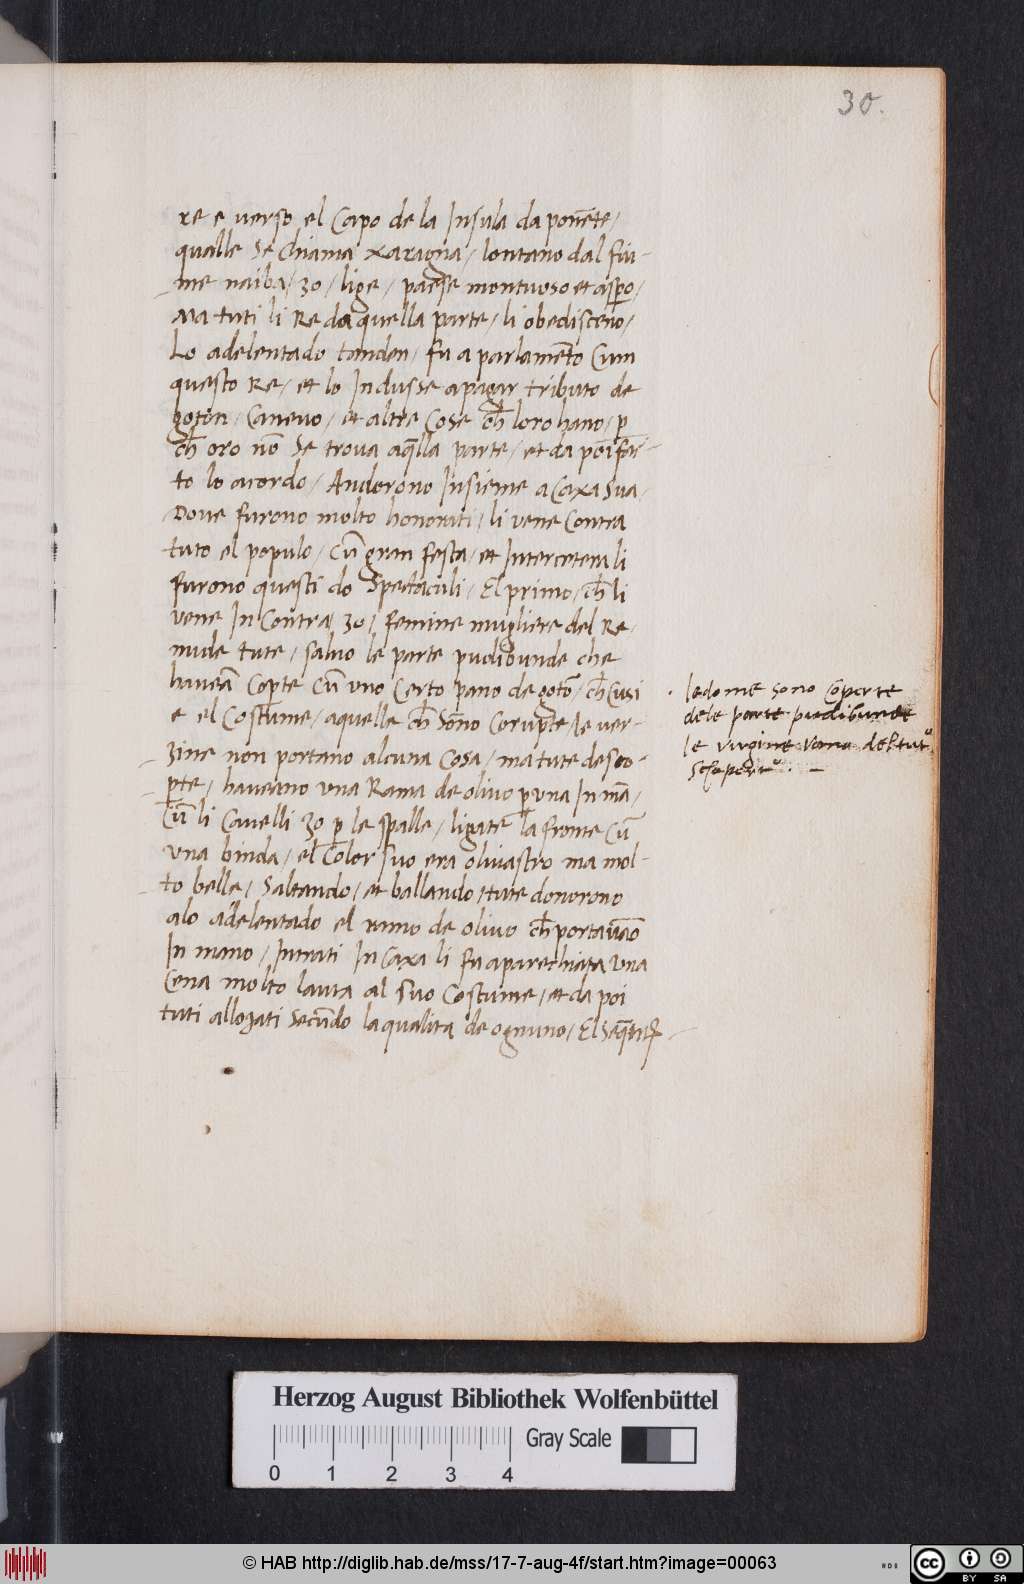 30.
re e verso el Capo de la Insula da ponēte/
qualle se chiama xaragna/ lontano dal fiu-
me naiba/ 30/ lige/ paese montuoso et aspo/
Ma tuti li Re da quella parte/ li obedisceno/
Lo adelentado tanden/ fu a parlamēto Cum
questo Re/ et lo Indusse a pagar tributo de
goton/ Caneuo/ et altre Cose ch̄ loro hano/ p̱
ch̄ oro nō se trova aq̄lla parte/ et da poi fac-
to lo acordo/ Andorono Insieme a Caxa sua/
Dove furono molto honorati/ li vene Contra
tuto el populo/ Cū gran festa/ et Inter cetera li
furono questi do Spectaculi/ El primo/ ch̄ li
vene In Contra/ 30/ femine mugliere del Re/
nude tute/ salvo le parte pudibunde che
haveā Cop̱te Cū uno Certo pano de gotō/ ch̄ Cusi
e el Costume/ aquelle ch̄ Sōno Corupte/ le ver-
zine non portano alcuna Cosa/ ma tute desco-
p̱te/ haveano una Rama de olivo p̱ una In mā/
Cū li Cavelli 30 p̱ le spalle/ ligate la fronte Cū
una binda/ el Color suo era olivastro ma mol-
to belle/ Saltando/ et ballando/ tute donorono
alo adelentado el ramo de olivo ch̄ portavāo
In mano/ Intrati In Caxa li fu aparechiata una
Cena molto lauta al suo Costume/ et da poi
tuti allozati Secūdo la qualita de ognuno/ El
le done sono Coperte
dele parte pudibunde
le virgine
Herzog August Bibliothek Wolfenbüttel
Gray Scale
0 1 2 3 4
© HAB http://diglib.hab.de/mss/17-7-aug-4f/start.htm?image=00063
cc BY SA